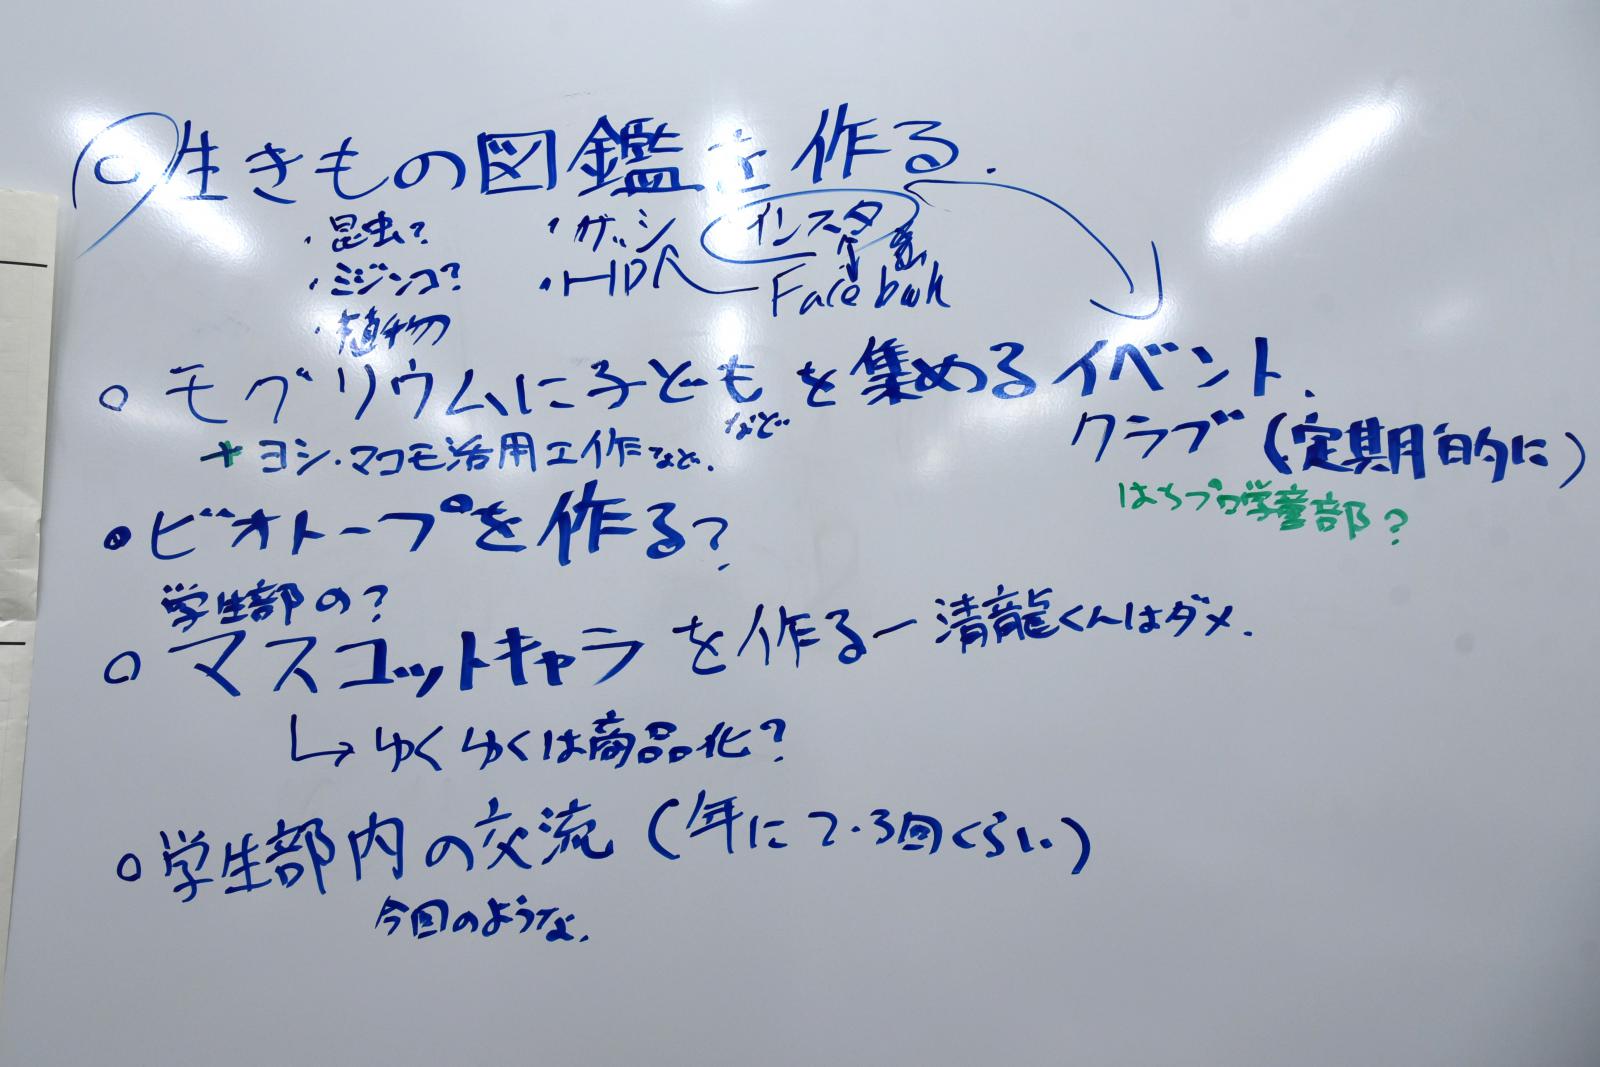 ○生きもの図鑑を作る.
・昆虫? ・ザッシ インスタ
・ミジンコ? ・HP Facebook
・植物
○モグリウムに子どもを集めるイベント.
など
クラブ(定期的に)
+ヨシ・マコモ活用工作など.
はちプロ学童部?
○ビオトープを作る?
学生部の?
○マスコットキャラを作るー清龍くんはダメ.
↳ゆくゆくは商品化?
○学生部内の交流(年に2・3回くらい)
今回のような.